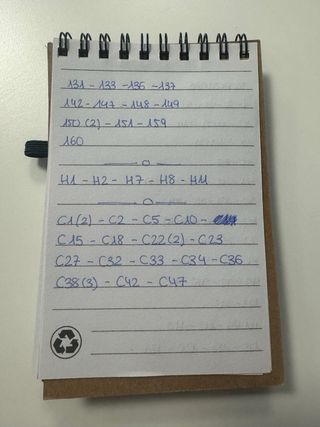 131 - 133 - 136 - 137
142 - 147 - 148 - 149
150 (2) - 151 - 159
160
H1 - H2 - H7 - H8 - H11
C1 (2) - C2 - C5 - C10 -
C15 - C18 - C22 (2) - C23
C27 - C32 - C33 - C34 - C36
C38 (3) - C42 - C47